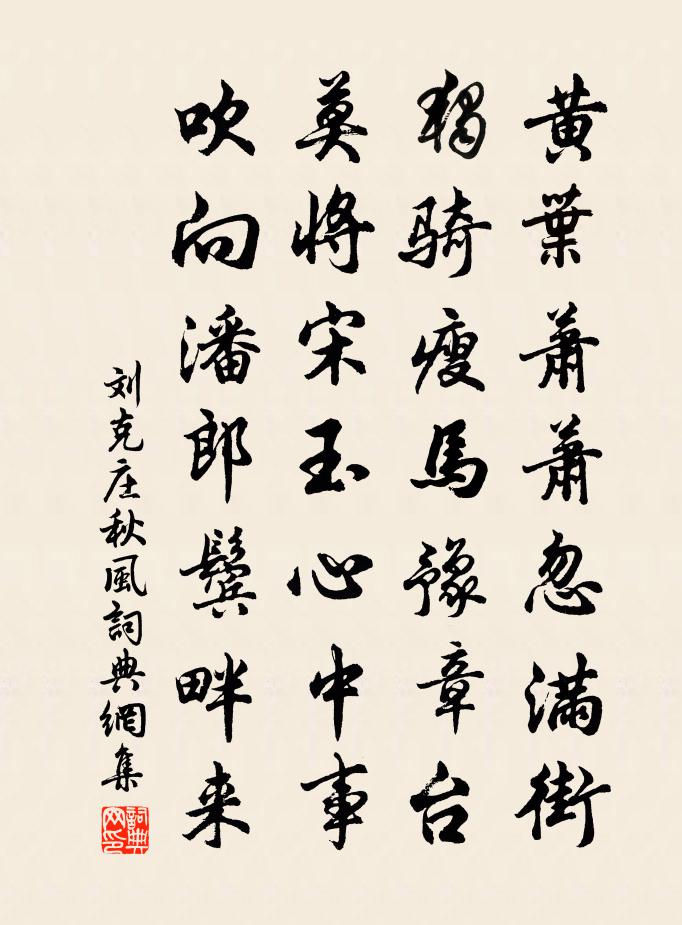 黄葉蕭蕭忽滿街
獨騎瘦馬豫章台
莫將宋玉心中事
吹向潘郎鬢畔来
刘克庄秋風詞典網集
詞典網印